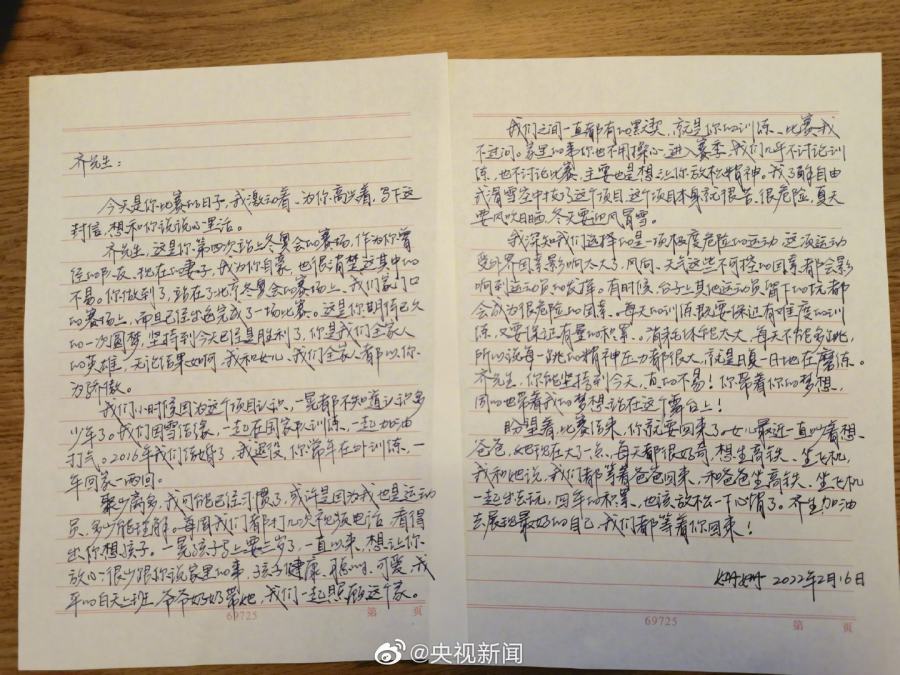 齐先生：
今天是你比赛的日子，我激动着、为你高兴着，写下这
封信，想和你说说心里话。
齐先生，这是你第四次站上冬奥会的赛场，作为你曾
经的队友、现在的妻子，我为你自豪，也很清楚这其中的
不易。你做到了，站在了北京冬奥会的赛场上，我们家门口
的赛场上，而且已经出色完成了一场比赛。这是你期待已久
的一次圆梦，坚持到今天已经是胜利了，你是我们全家人
的英雄，无论结果如何，我和女儿、我们全家人都以你
为骄傲。
我们小时候因为这个项目认识，一晃都不知道认识多
少年了。我们因雪结缘，一起在国家队训练、一起加油
打气。2016年我们结婚了，我退役，你常年在外训练，一
年回家一两回。
聚少离多，我可能已经习惯了，或许是因为我也是运动
员，多少能理解。每周我们都打几次视频电话，看得
出你想孩子。一晃孩子马上要三岁了，一直以来，想让你
放心，很少跟你说家里的事，孩子健康、聪明、可爱，我
平时白天上班，爷爷奶奶带她，我们一起照顾这个家。
69725
第 页
我们之间一直都有的默契，就是你的训练、比赛我
不过问。家里的事你也不用操心，进入赛季，我们几乎不讨论训
练，也不讨论比赛，主要也是想让你放松精神。我了解自由
式滑雪空中技巧这个项目，这个项目本身就很苦、很危险，夏天
要风吹日晒，冬天要迎风冒雪。
我深知我们选择的是一项极度危险的运动，这项运动
受外界因素影响太大了，风向、天气这些不可控的因素都会影
响到运动员的发挥。有时候，台子上其他运动员留下的坑都
会成为很危险的因素。每天的训练，既要保证有难度的训
练，又要保证有量的积累。消耗体能太大，每天不能多跳，
所以说每一跳的精神压力都很大，就是日复一日地在磨练。
齐先生，你能坚持到今天，真的不易！你带着你的梦想，
同时也带着我的梦想站在这个舞台上！
盼望着，比赛结束，你就要回来了，女儿最近一直吵着想
爸爸，她现在大一点，每天都很好奇，想坐高铁、坐飞机，
我和她说，我们都等着爸爸回来，和爸爸坐高铁、坐飞机
一起出去玩，四年的积累，也该放松一下心情了。齐先生加油
去展现最好的自己，我们都等着你回来！
2022年2月16日
69725
第 页
@央视新闻